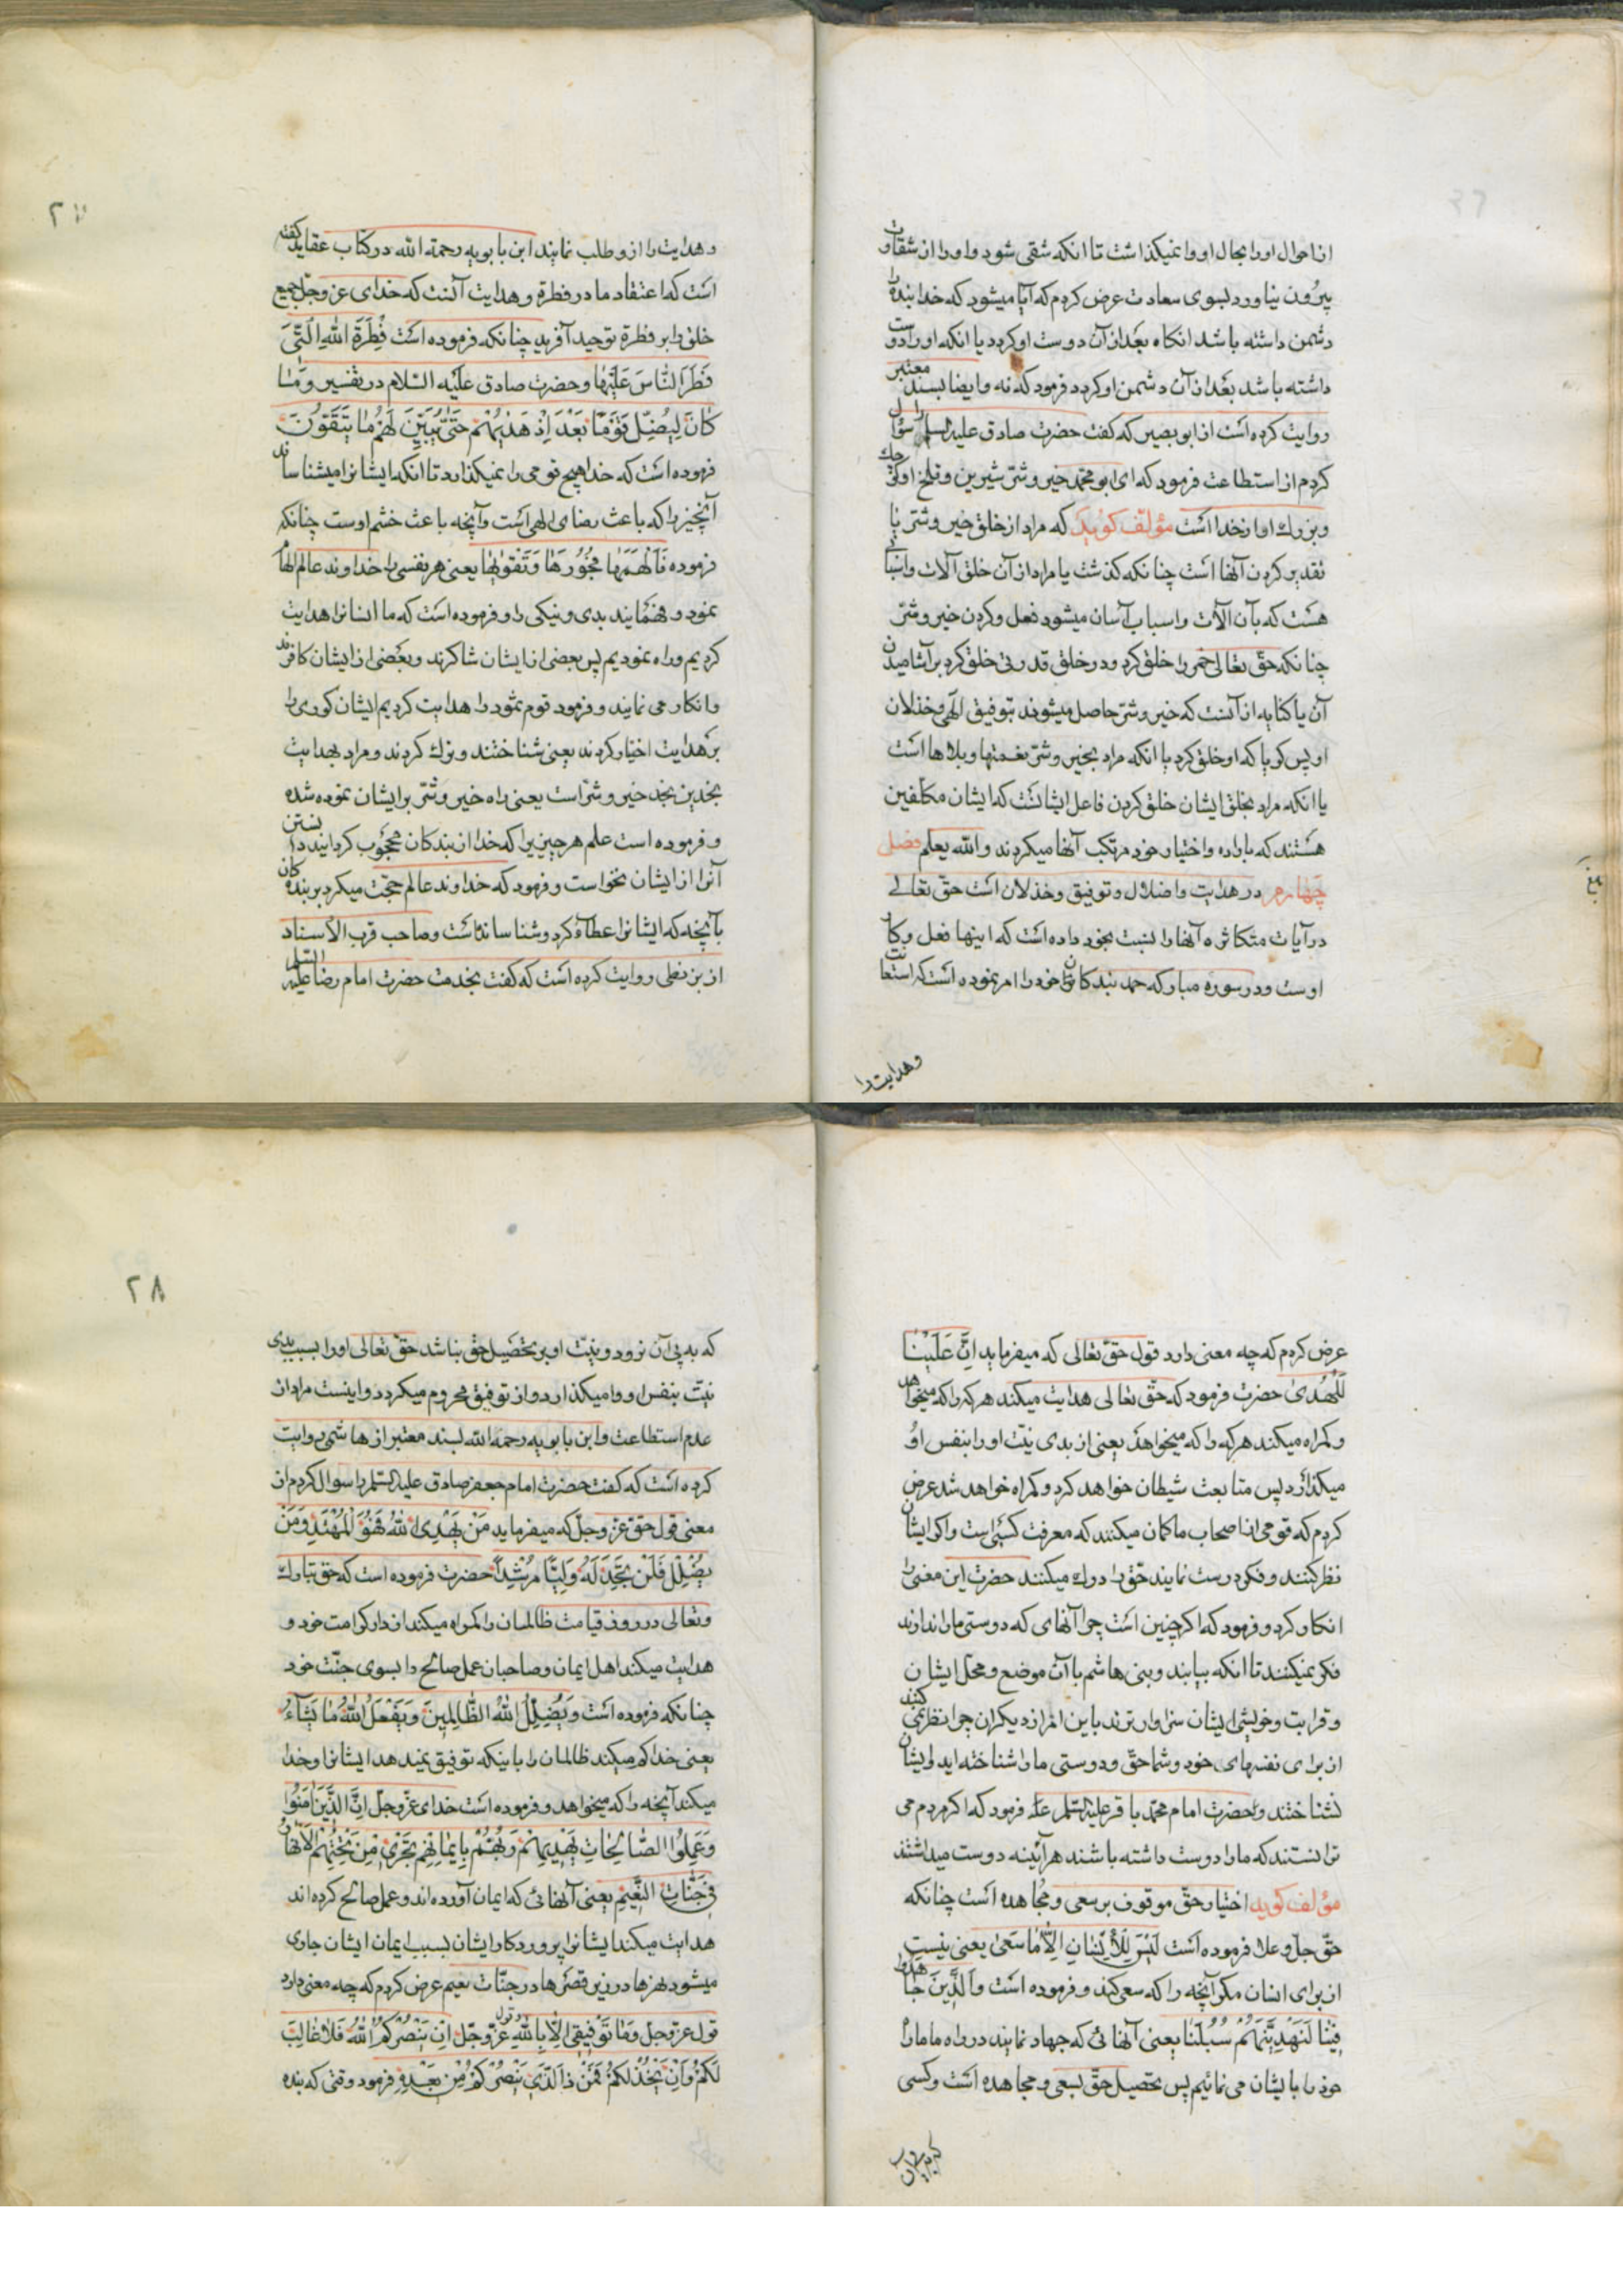 از احوال او را بحال او وا نمیکذاشت تا انکه شقی شود و او را از شقاوت
بیرون نیاورد بسوی سعادت عرض کردم که آیا میشود که خدا بنده را
دشمن داشته باشد انکاه بعد از آن دوست او کردد یا انکه او را دوست
داشته باشد بعد از آن دشمن او کردد فرمود که نه و ایضا بسند معتبر
روایت کرده است از ابو بصیر که کفت حضرت صادق علیه السلم را سؤال
کردم از استطاعت فرمود که ای ابو محمد خیر و شر شیرین و تلخ اوکوچك
و بزرك او از خداست مؤلف کوید که مراد از خلق خیر و شر یا
تقدیر کردن آنها است چنانکه کذشت یا مراد از آن خلق آلات و اسبابی
هست که بآن آلات و اسباب آسان میشود فعل و کردن خیر و شر
چنانکه حق تعالی خمر را خلق کرد و در خلق قدرتی خلق کرد بر آشامیدن
آن یا کنایه از آنست که خیر و شر حاصل میشوند بتوفیق الهی و خذلان
او پس کویا که او خلق کرد یا انکه مراد بخیر و شر نعمتها و بلاها است
یا انکه مراد بخلق ایشان خلق کردن فاعل ایشانست که ایشان مکلفین
هستند که باراده و اختیار خود مرتکب آنها میکردند و الله یعلم فصل
چهارم در هدایت و اضلال و توفیق و خذلان است حق تعالی
در آیات متکاثره آنها را نسبت بخود داده است که اینها فعل و کار
اوست و در سوره مبارکه حمد بندکان خود را امر نموده است که استعانت
و هدایت را
و هدایت را ازو طلب نمایند ابن بابویه رحمته الله در کتاب عقاید کفته
است که اعتقاد ما در فطرة و هدایت آنست که خدای عز وجل جمیع
خلق را بر فطرة توحید آفرید چنانکه فرموده است فِطْرَةَ اللهِ الَّتی
فَطَرَ النَّاسَ عَلَیْهَا و حضرت صادق علیه السلام در تفسیر وَمَا
کَانَ لِیُضِلَّ قَوْمًا بَعْدَ اِذْ هَدٰیهُمْ حَتّٰی یُبَیِّنَ لَهُمْ مَا یَتَّقُونَ
فرموده است که خدا هیچ قومی را نمیکذارد تا انکه ایشانرا میشناساند
آنچیز را که باعث رضای الهی است و آنچه باعث خشم اوست چنانکه
فرموده فَاَلْهَمَهَا فُجُورَهَا وَتَقْوٰیهَا یعنی هر نفسی را خداوند عالم الهام
نمود و فهمانید بدی و نیکی را و فرموده است که ما انسانرا هدایت
کردیم و راه نمودیم پس بعضی از ایشان شاکرند و بعضی از ایشان کافرند
و انکار می نمایند و فرمود قوم ثمود را هدایت کردیم ایشان کوری را
بر هدایت اختیار کردند یعنی شناختند و ترك کردند و مراد بهدایت
نجدین نجد خیر و شر است یعنی راه خیر و شر بر ایشان نموده شده
و فرموده است علم هر چیزیرا که خدا از بندکان محجوب کردانید دانستن
آنرا از ایشان نخواست و فرمود که خداوند عالم حجت میکرد بر بندکان
بآنچه که ایشانرا عطا کرد و شناسانده است و صاحب قرب الاسناد
از بزنطی روایت کرده است که کفت بخدمت حضرت امام رضا علیه السلم
عرض کردم که چه معنی دارد قول حق تعالی که میفرماید اِنَّ عَلَیْنَا
لَلْهُدیٰ حضرت فرمود که حق تعالی هدایت میکند هر که را که میخواهد
و کمراه میکند هر که را که میخواهد یعنی از بدی نیت او را بنفس او
میکذارد پس متابعت شیطان خواهد کرد و کمراه خواهد شد عرض
کردم که قومی از اصحاب ما کمان میکنند که معرفت کسبی است و اکر ایشان
نظر کنند و فکر درست نمایند حق را درك میکنند حضرت این معنی را
انکار کرد و فرمود که اکر چنین است چرا آنهای که دوستی ما را ندارند
فکر نمیکنند تا انکه بیابند و بنی هاشم با آن موضع و محل ایشان
و قرابت و خویشی ایشان سزاوارترند باین امر از دیکران چرا نظر نمی کنند
از برای نفسهای خود و شما حق و دوستی ما را شناخته اید و ایشان
نشناختند و حضرت امام محمد باقر علیه السلم فرمود که اکر مردم می
توانستند که ما را دوست داشته باشند هر آینه دوست میداشتند
مؤلف کوید اختیار حق موقوف بر سعی و مجاهده است چنانکه
حق جل و علا فرموده است لَیْسَ لِلْاِنْسَانِ اِلَّا مَا سَعَیٰ یعنی نیست
از برای انسان مکر آنچه را که سعی کند و فرموده است وَالَّذِینَ جَاهَدُوا
فِینَا لَنَهْدِیَنَّهُمْ سُبُلَنَا یعنی آنهائی که جهاد نمایند در راه ما ما راه
خود را بایشان می نمائیم پس تحصیل حق بسعی و مجاهده است و کسی
که به پی آن نرود و نیت او بر تحصیل حق نباشد حق تعالی او را بسبب بدی
نیت بنفس او وا میکذارد و از توفیق محروم میکردد و اینست مراد از
عدم استطاعت و ابن بابویه رحمه الله بسند معتبر از هاشمی روایت
کرده است که کفت حضرت امام جعفر صادق علیه السلم را سوال کردم از
معنی قول حق عز وجل که میفرماید مَنْ یَهْدِی اللهُ فَهُوَ الْمُهْتَدِ وَمَنْ
یُضْلِلْ فَلَنْ تَجِدَ لَهُ وَلِیًّا مُرْشِدًا حضرت فرموده است که حق تبارك
و تعالی در روز قیامت ظالمان را کمراه میکند از دار کرامت خود و
هدایت میکند اهل ایمان و صاحبان عمل صالح را بسوی جنت خود
چنانکه فرموده است وَیُضِلُّ اللهُ الظَّالِمِینَ وَیَفْعَلُ اللهُ مَا یَشَاءُ
یعنی خدا کم میکند ظالمان را باینکه توفیق نمیدهد ایشانرا و خدا
میکند آنچه را که میخواهد و فرموده است خدای عز وجل اِنَّ الَّذِینَ اٰمَنُوا
وَعَمِلُوا الصَّالِحَاتِ یَهْدِیهِمْ رَبُّهُمْ بِاِیمَانِهِمْ تَجْرِی مِنْ تَحْتِهِمُ الْاَنْهَارُ
فِی جَنَّاتِ النَّعِیمِ یعنی آنهائی که ایمان آورده اند و عمل صالح کرده اند
هدایت میکند ایشانرا پروردکار ایشان بسبب ایمان ایشان جاری
میشود نهرها در زیر قصرها در جنات نعیم عرض کردم که چه معنی دارد
قول عز وجل وَمَا تَوْفِیقِی اِلَّا بِاللهِ و قول عز وجل اِنْ یَنْصُرْکُمُ اللهُ فَلَا غَالِبَ
لَکُمْ وَاِنْ یَخْذُلْکُمْ فَمَنْ ذَا الَّذِی یَنْصُرُکُمْ مِنْ بَعْدِهِ فرمود وقتی که بنده
۲۸